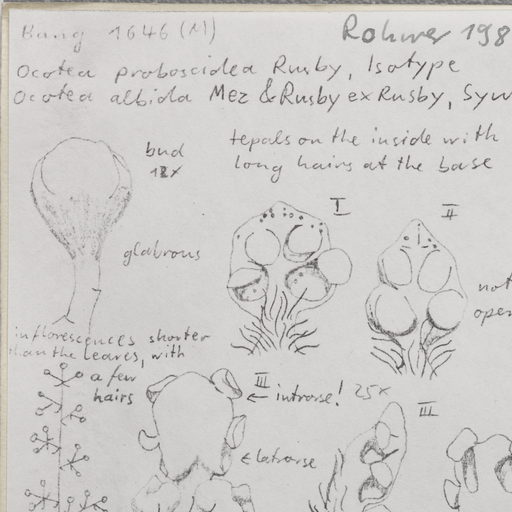 Bang 1646 (M)
Rohwer 198
Ocotea proboscidea Rusby, Isotype
Ocotea albida Mez & Rusby ex Rusby, Syn
bud
12x
tepals on the inside with
long hairs at the base
I
II
glabrous
not
open
inflorescences shorter
than the leaves, with
a few
hairs
III
← introrse! 25x
III
← latrorse